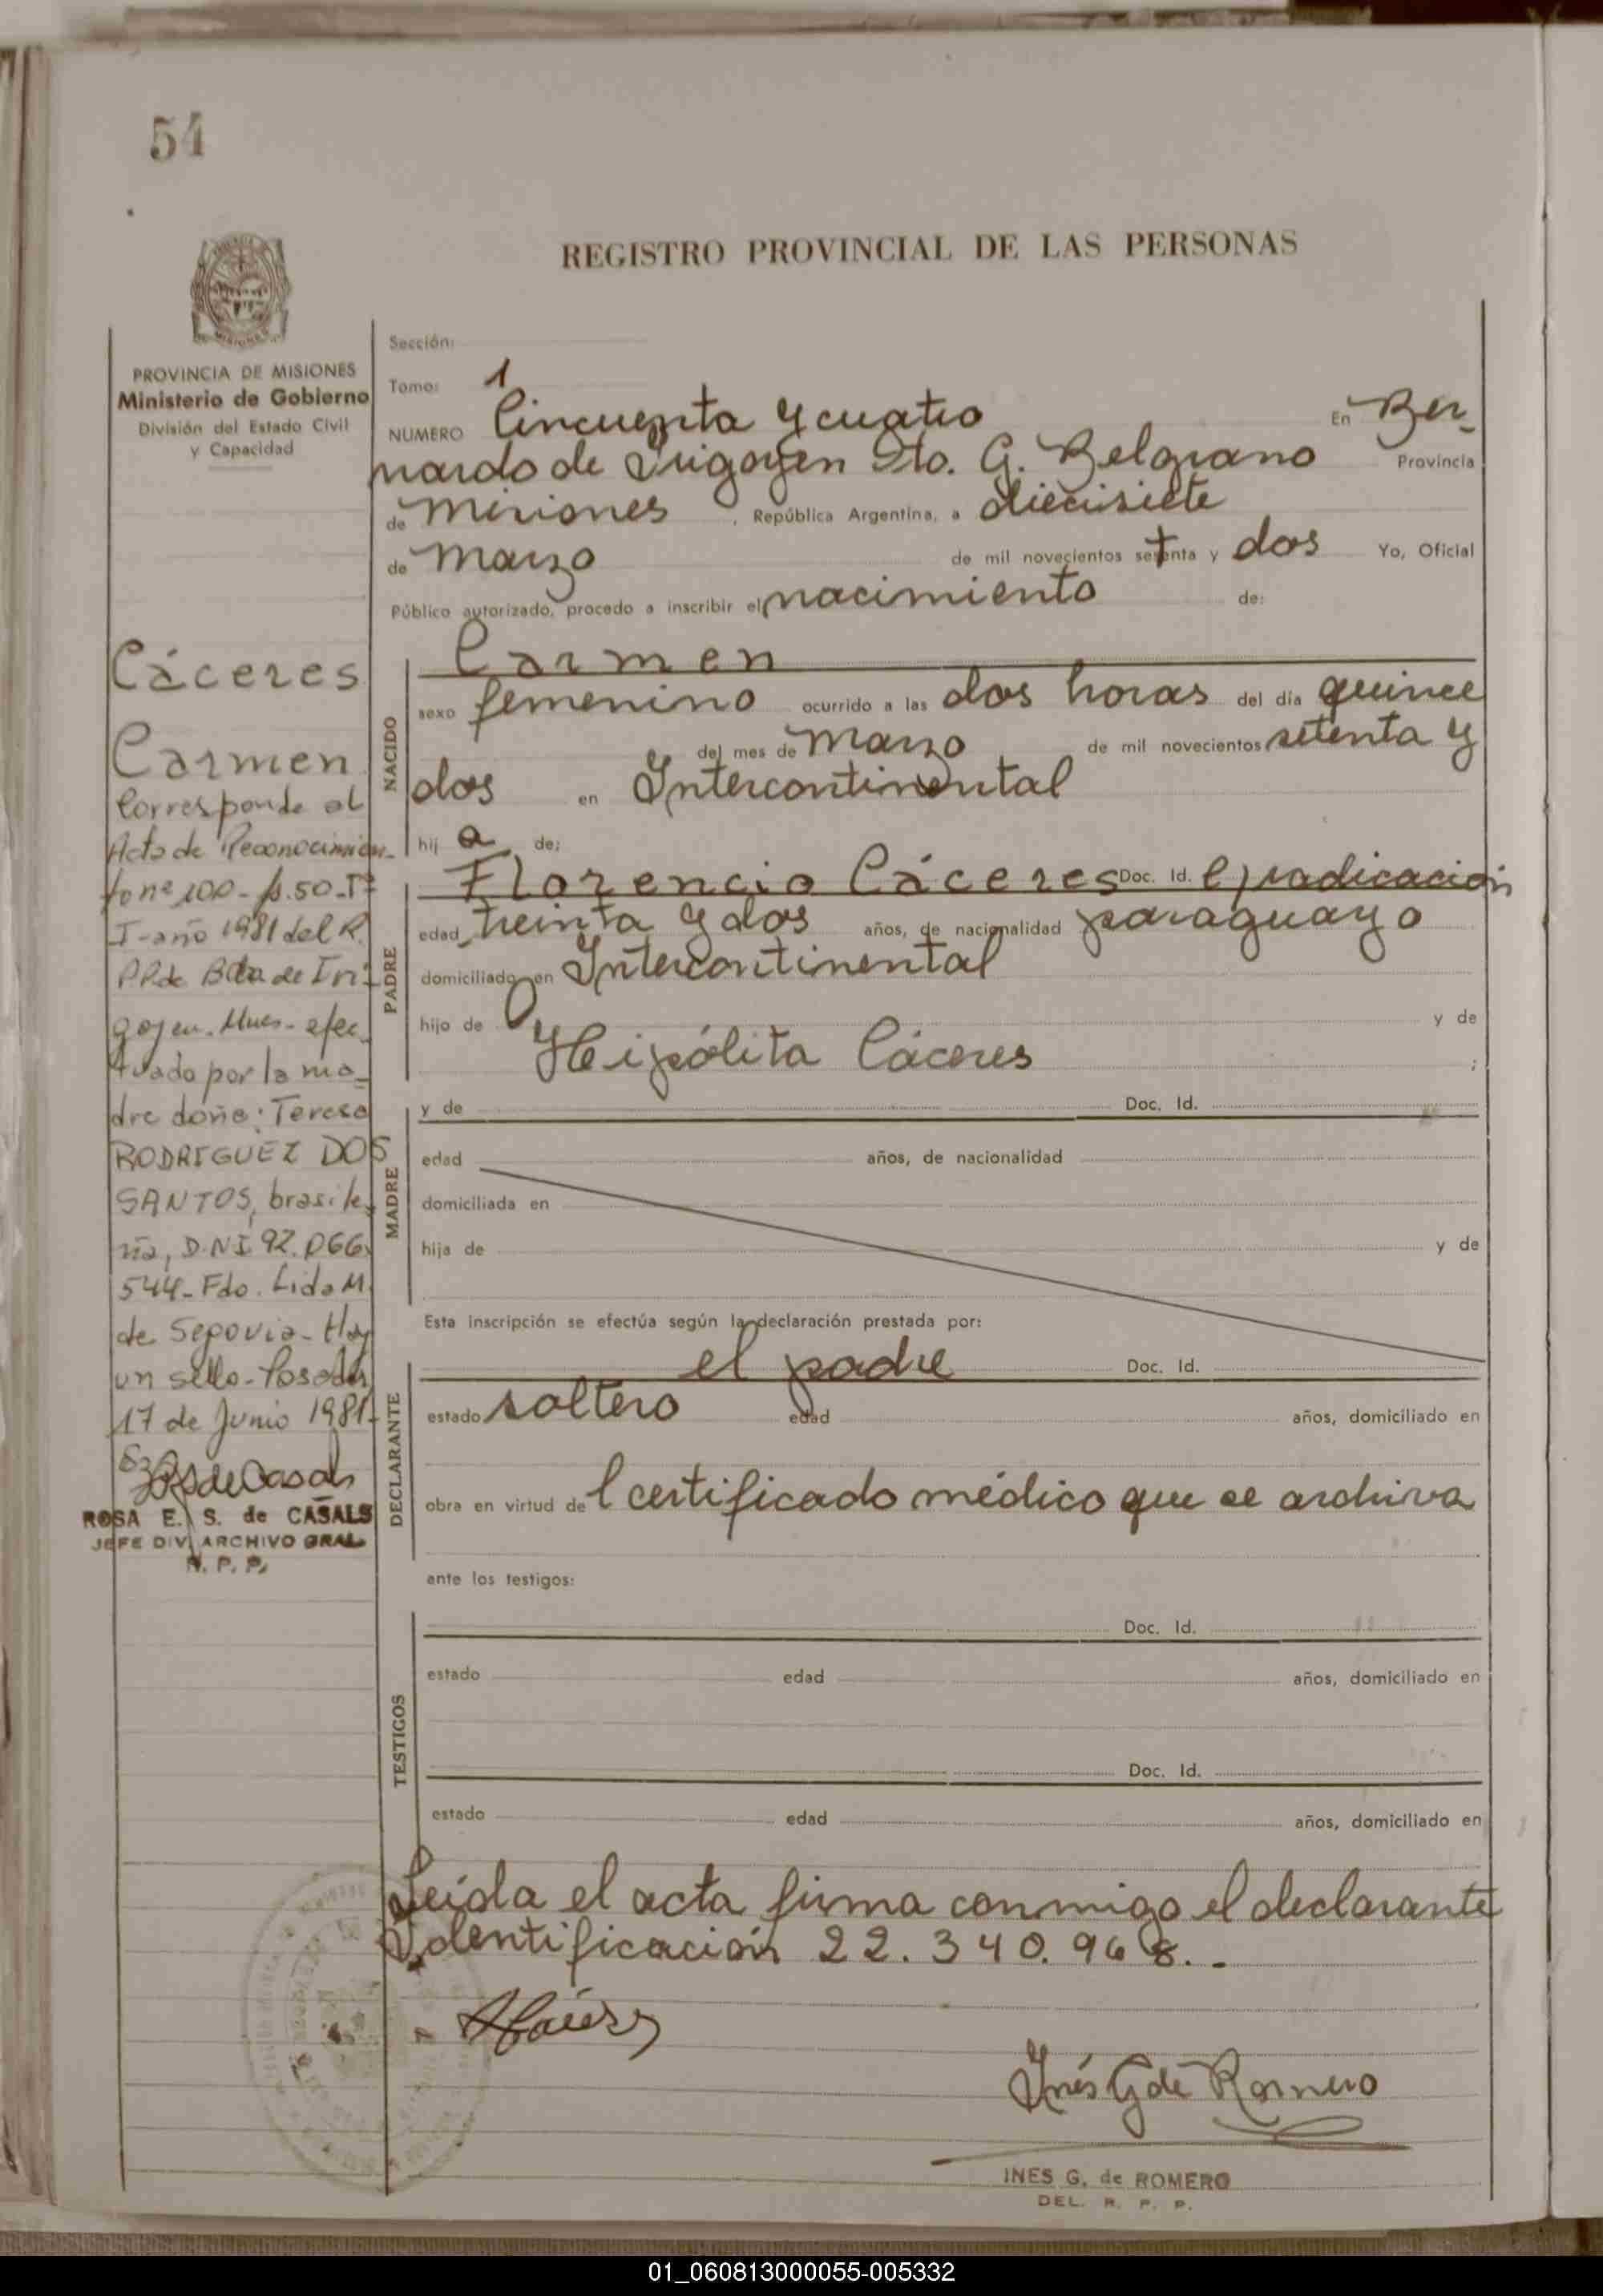 54
REGISTRO PROVINCIAL DE LAS PERSONAS
PROVINCIA DE MISIONES
Ministerio de Gobierno
División del Estado Civil
y Capacidad
Sección:
Tomo: 1
NUMERO Cincuenta y cuatro En Ber_
nardo de Irigoyen Dto. G. Belgrano Provincia
de Misiones, República Argentina, a diecisiete
de Marzo de mil novecientos setenta y dos Yo, Oficial
Público autorizado, procedo a inscribir el nacimiento de:
Carmen
NACIDO
sexo femenino ocurrido a las dos horas del día quince
del mes de Marzo de mil novecientos setenta y
dos en Intercontinental
hij a de:
Florencio Cáceres Doc. Id. C/radicación
PADRE
edad treinta y dos años, de nacionalidad paraguayo
domiciliado en Intercontinental
hijo de y de
Hipólita Cáceres ;
MADRE
y de Doc. Id.
edad años, de nacionalidad
domiciliada en
hija de y de
Esta inscripción se efectúa según la declaración prestada por:
DECLARANTE
el padre Doc. Id.
estado soltero edad años, domiciliado en
obra en virtud del certificado médico que se archiva
ante los testigos:
TESTIGOS
Doc. Id.
estado edad años, domiciliado en
Doc. Id.
estado edad años, domiciliado en
Leída el acta firma conmigo el declarante
Identificación 22.340.968.-
Inés G de Romero
INES G. de ROMERO
DEL. R. P. P.
Cáceres
Carmen
Corresponde al
Acta de Reconocimien_
to nº 100- fs.50-Tº
I-año 1981 del R.
PP.de Bdo de Iri_
goyen. Mnes- efec_
tuado por la ma_
dre doña: Teresa
RODRIGUEZ DOS
SANTOS, brasile_
ña, D.N.I 92.066.
544- Fdo. Lida M.
de Segovia- Hay
un sello- Posadas
17 de Junio 1981-
ROSA E. S. de CASALS
JEFE DIV. ARCHIVO GRAL.
R. P. P.
01_060813000055-005332